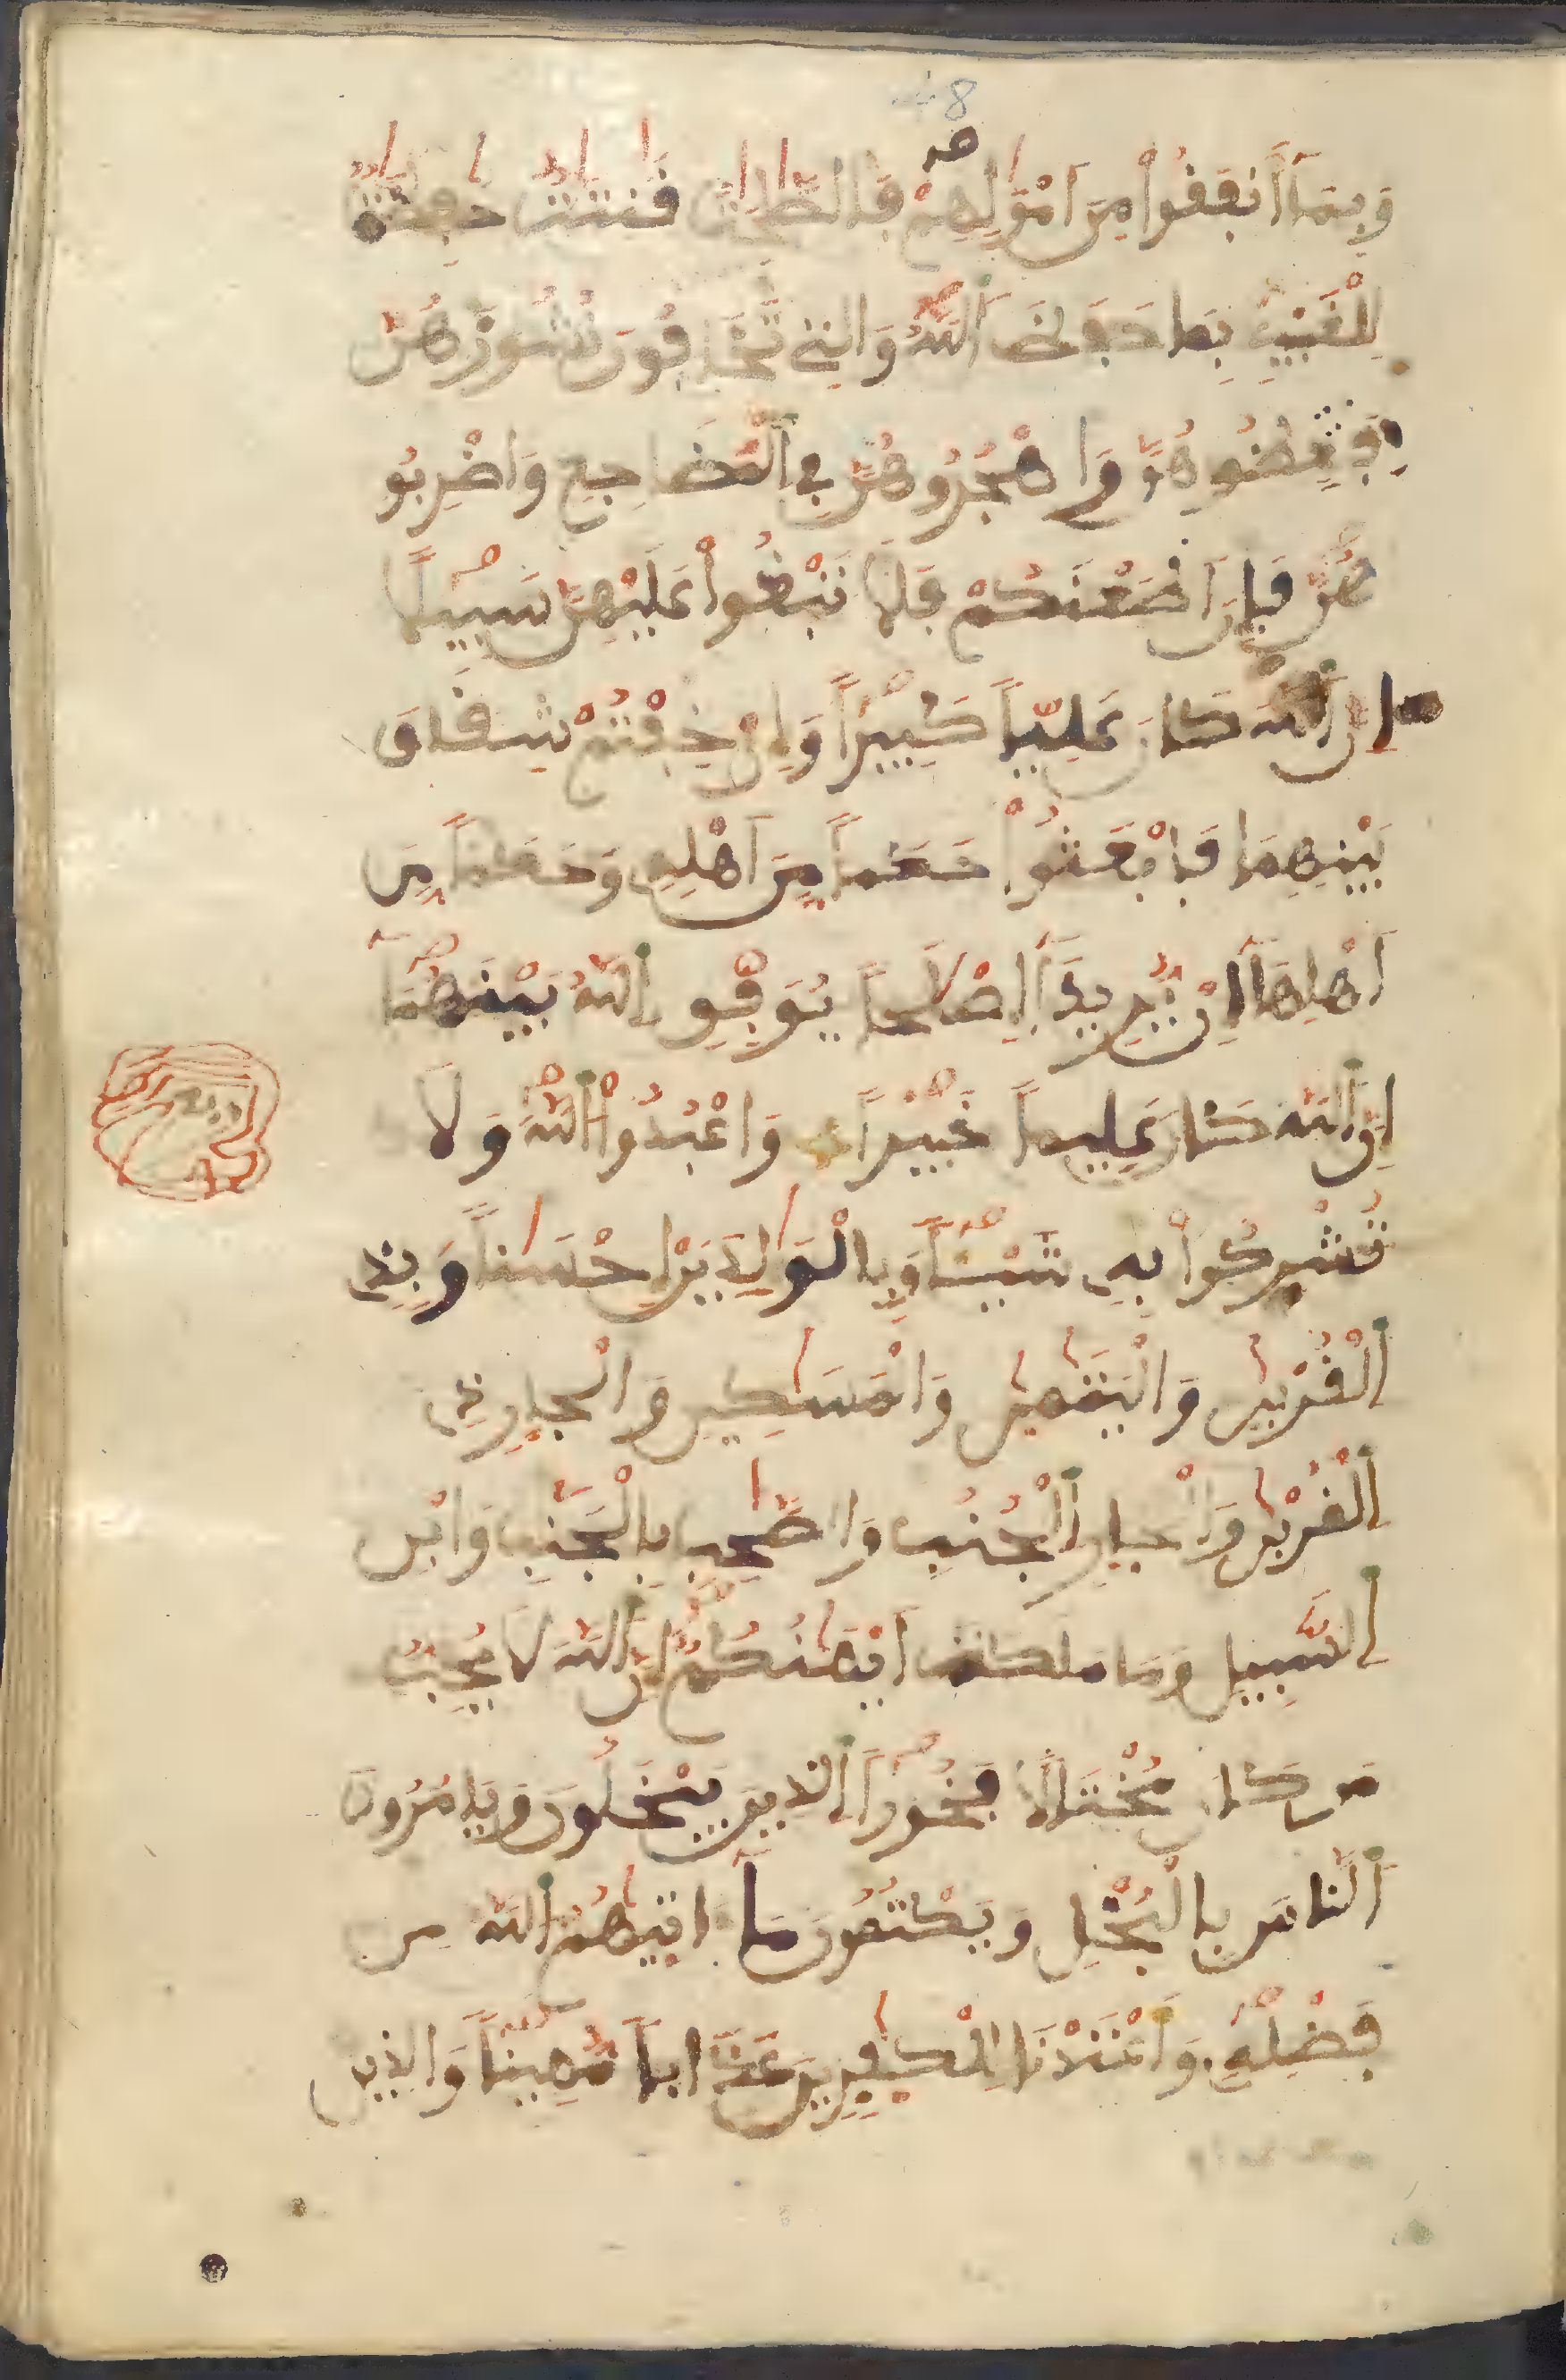 48
وَبِمَآ أَنفَقُواْ مِنَ اَمْوَٰلِهِمْ فَالصَّٰلِحَٰتُ قَٰنِتَٰتٌ حَٰفِظَٰتٌ
لِّلْغَيْبِ بِمَا حَفِظَ اَ۬للَّهُ وَالتِے تَخَافُونَ نُشُوزَهُنَّ
فَعِظُوهُنَّ وَاهْجُرُوهُنَّ فِے اِ۬لْمَضَاجِعِ وَاضْرِبُو
هُنَّ فَإِنَ اَطَعْنَكُمْ فَلَا تَبْغُواْ عَلَيْهِنَّ سَبِيلًا
اِنَّ اَ۬للَّهَ كَانَ عَلِيّاً كَبِيراً وَإِنْ خِفْتُمْ شِقَاقَ
بَيْنِهِمَا فَابْعَثُواْ حَكَماً مِّنَ اَهْلِهِ وَحَكَماً مِّنَ
اَهْلِهَآ إِنْ يُّرِيدَآ إِصْلَٰحاً يُوَفِّقِ اِ۬للَّهُ بَيْنَهُمَآ
إِنَّ اَ۬للَّهَ كَانَ عَلِيماً خَبِيراً وَاعْبُدُواْ اُ۬للَّهَ وَلَا
تُشْرِكُواْ بِهِ شَيْـٔاً وَبِالْوَٰلِدَيْنِ إِحْسَٰناً وَبِذِے
اِ۬لْقُرْب۪يٰ وَالْيَتَٰم۪يٰ وَالْمَسَٰكِينِ وَالْجارِ ذِے
اِ۬لْقُرْب۪يٰ وَالْجارِ اِ۬لْجُنُبِ وَالصَّٰحِبِ بِالْجَنۢبِ وَابْنِ
اِ۬لسَّبِيلِ وَمَا مَلَكَتَ اَيْمَٰنُكُمُۥٓ إِنَّ اَ۬للَّهَ لَا يُحِبُّ
مَن كَانَ مُخْتَالًا فَخُوراً اِ۬لذِينَ يَبْخَلُونَ وَيَامُرُونَ
اَ۬لنَّاسَ بِالْبُخْلِ وَيَكْتُمُونَ مَآ ءَات۪يٰهُمُ اُ۬للَّهُ مِن
فَضْلِهِ وَأَعْتَدْنَا لِلْكٰفِرِينَ عَذَاباً مُّهِيناً وَالذِينَ